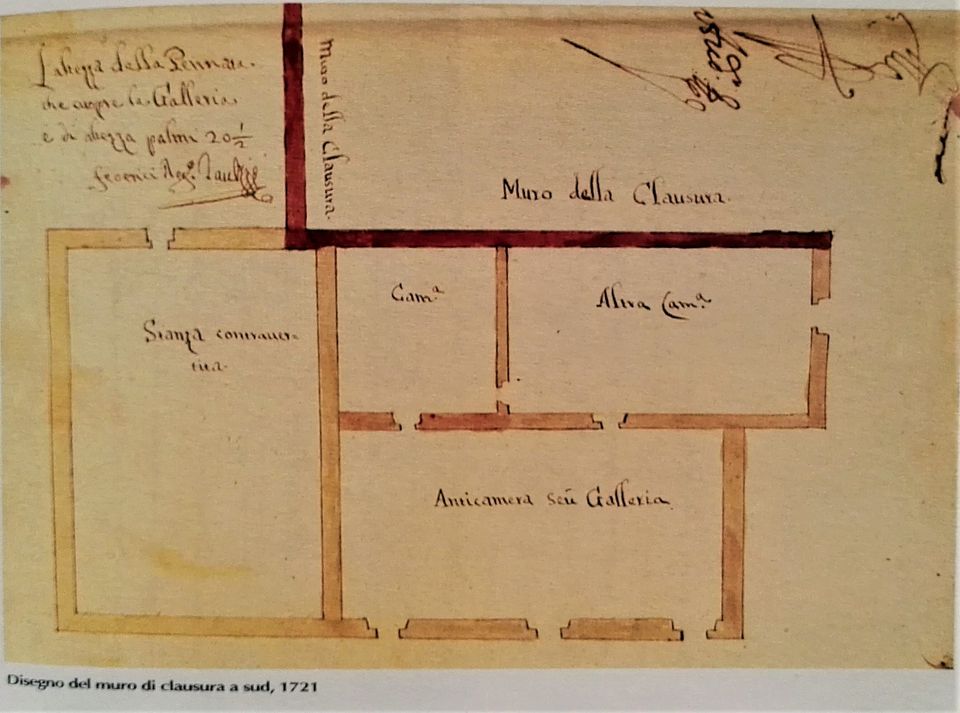 L'altezza della Pennata
che copre la Galleria
è di altezza palmi 20 1/2
Muro della Clausura.
Muro della Clausura.
Cam.ª
Altra Cam.ª
Stanza controver=
tita.
Anticamera seù Galleria
Disegno del muro di clausura a sud, 1721